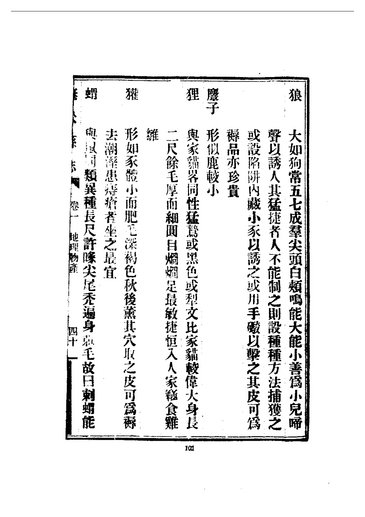 狼
大如狗常五七成羣尖頭白頰鳴能大能小善爲小兒啼
聲以誘人其猛捷者人不能制之則設種種方法捕獲之
或設陷阱內藏小豕以誘之或用手礮以擊之其皮可爲
褥品亦珍貴
麞子
形似鹿較小
狸
與家貓畧同性猛鷙或黑色或犁文比家貓較偉大身長
二尺餘毛厚而細圓目爛爛足最敏捷恒入人家竊食雞
雛
獾
形如豕體小而肥毛深褐色秋後薰其穴取之皮可爲褥
去潮溼患痔瘡者坐之最宜
蝟
與鼠同類異種長尺許喙尖尾禿遍身毛故曰刺蝟能
志 卷一 地理 物產 四十
102